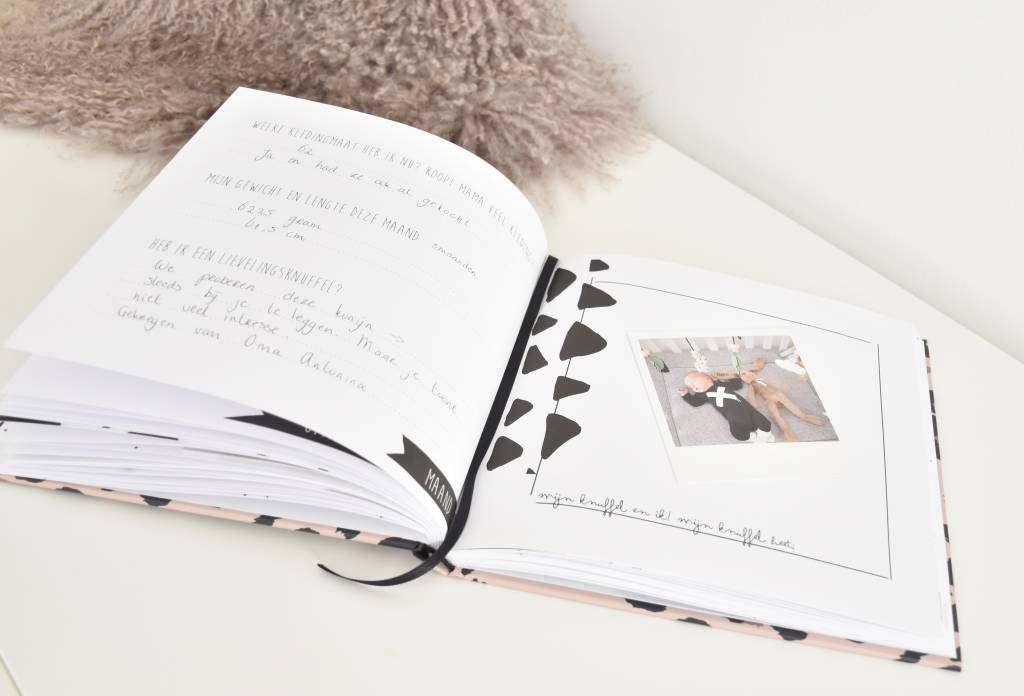 WELKE KLEDINGMAAT HEB IK NU? KOOPT MAMA VEEL KLEDING?
62
Ja en had ze ook al gekocht
MIJN GEWICHT EN LENGTE DEZE MAAND 2maanden
6225 gram
61,5 cm
HEB IK EEN LIEVELINGSKNUFFEL?
We proberen deze konijn →
steeds bij je te leggen. Maar je toont
niet veel intresse..
Gekregen van Oma Antunina
MAAND
mijn knuffel en ik! mijn knuffel heet: